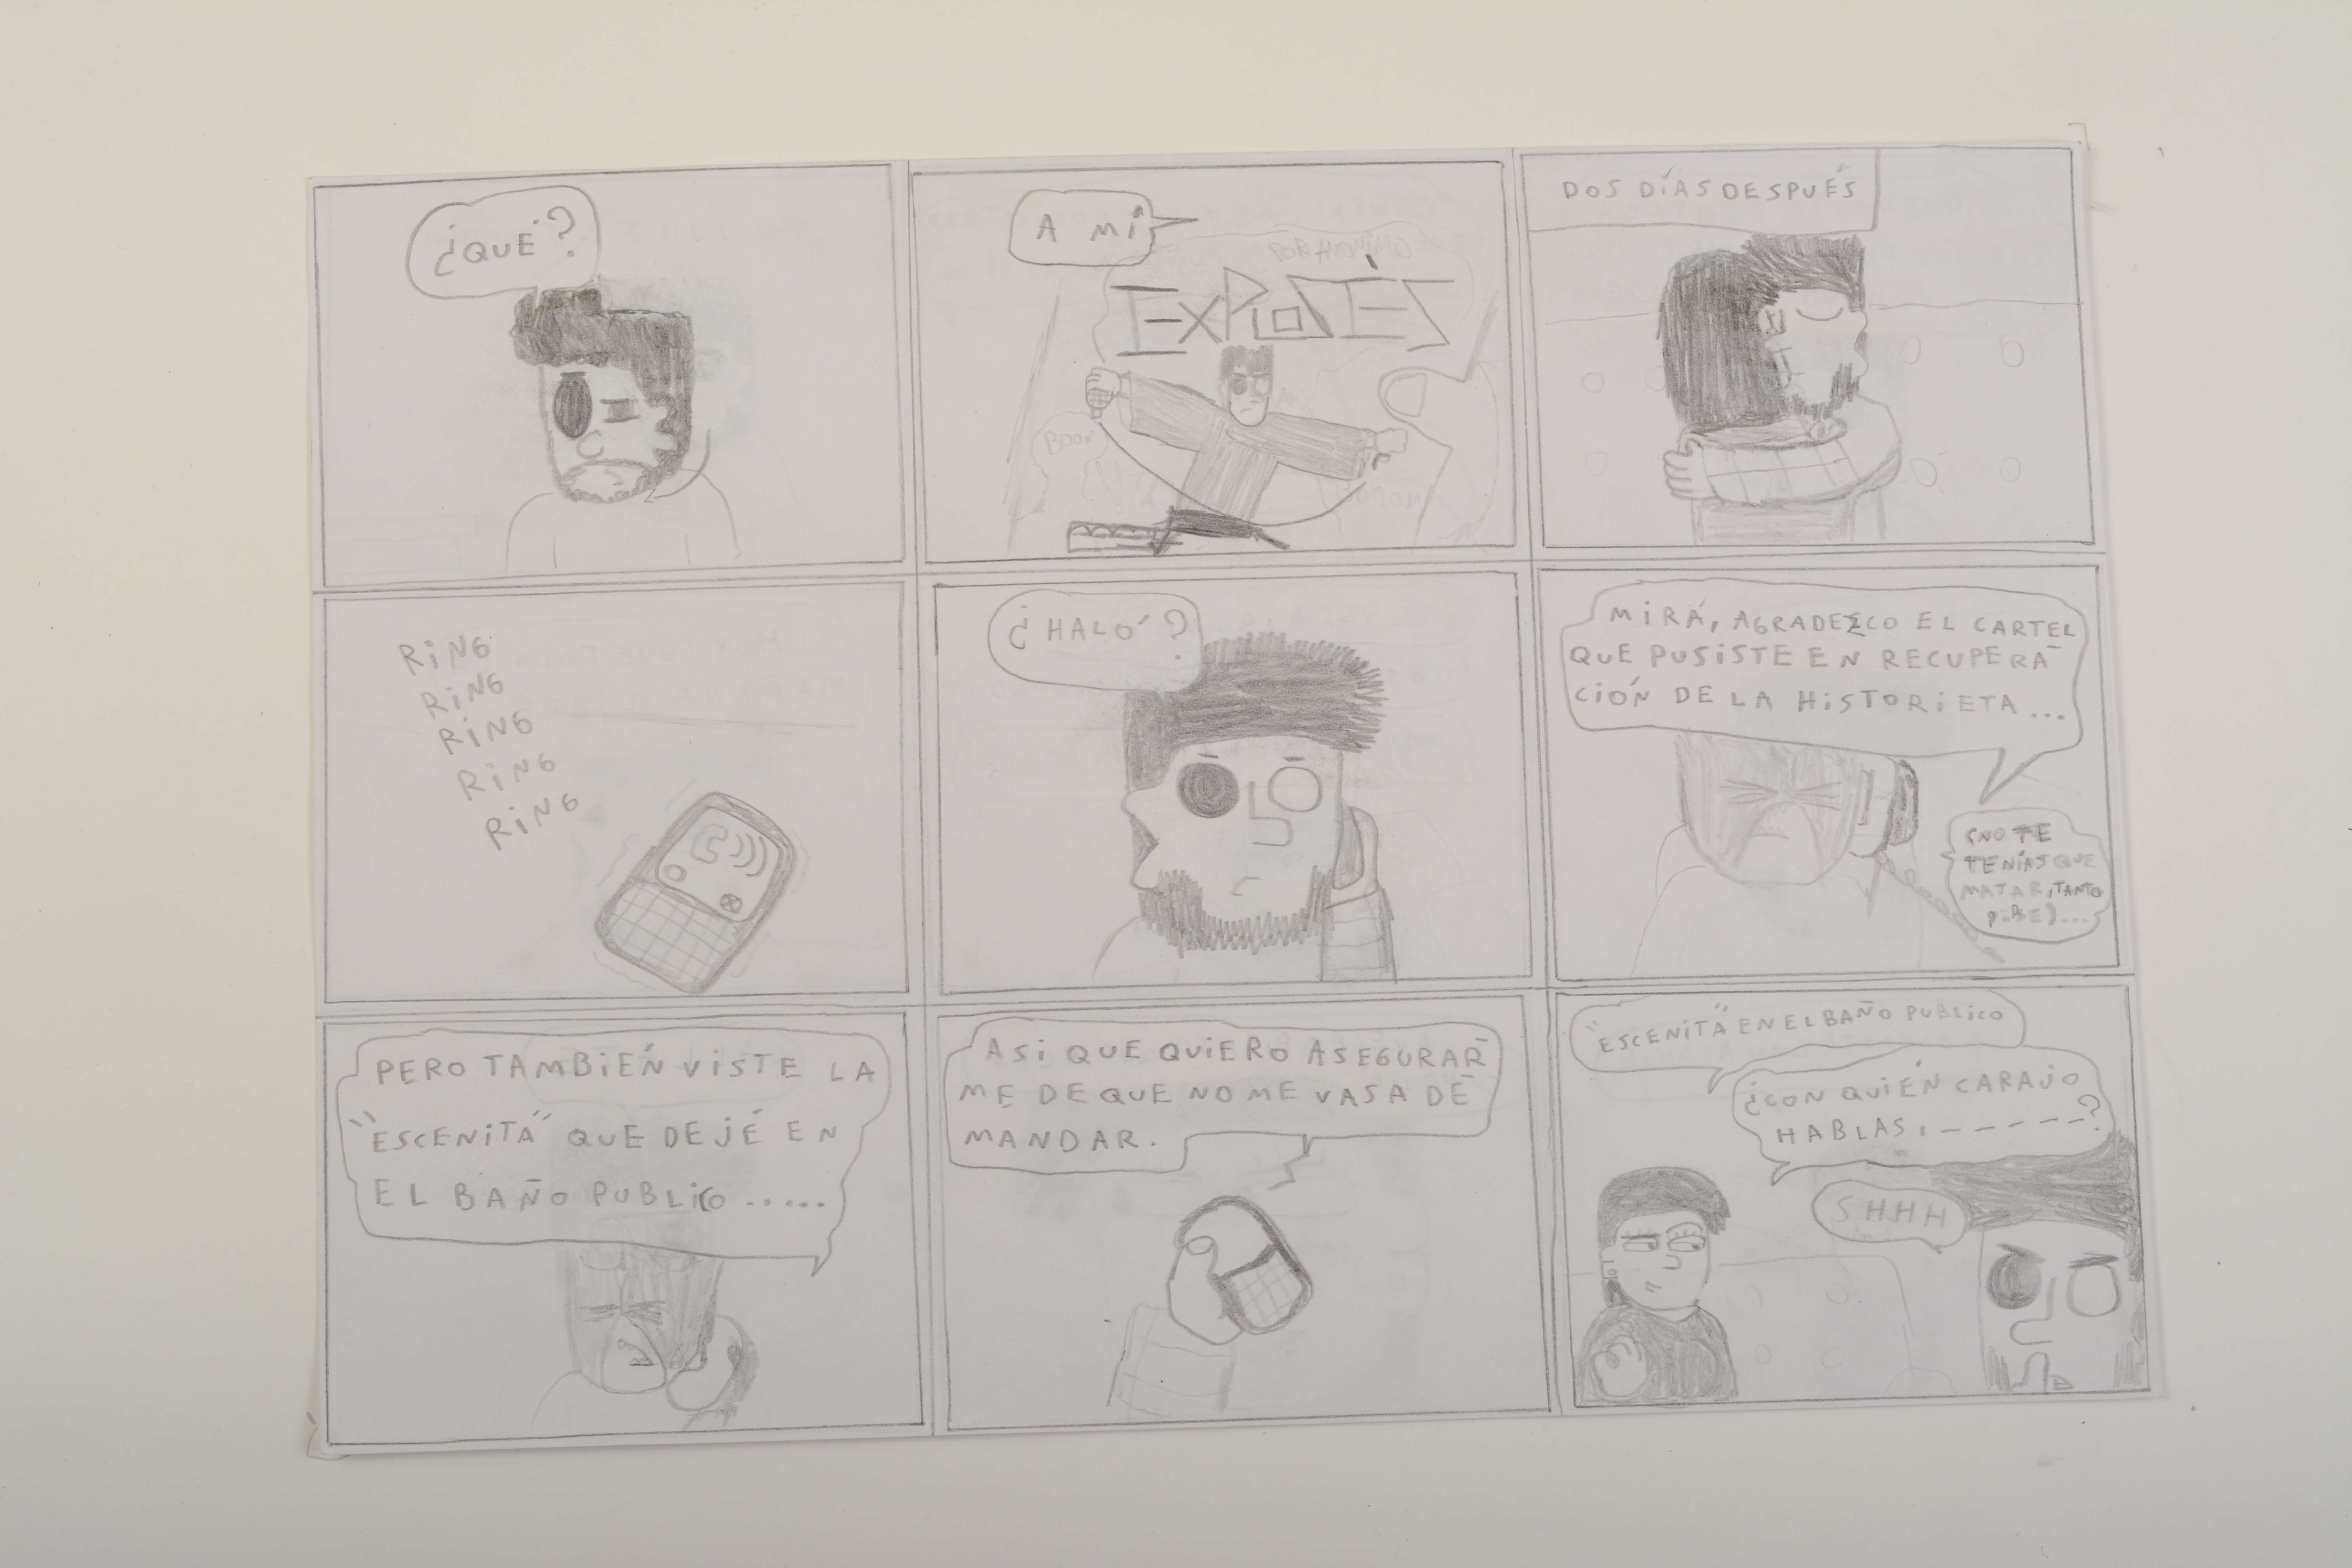 ¿QUÉ?
A MÍ
EXPLOSIÉS
DOS DÍAS DESPUÉS
RING
RING
RING
RING
RING
¿HALÓ?
MIRÁ, AGRADEZCO EL CARTEL
QUE PUSISTE EN RECUPERA-
CIÓN DE LA HISTORIETA...
(NO TE
TENÍAS QUE
MATAR, TANTO
PIBE)...
PERO TAMBIÉN VISTE LA
"ESCENITA" QUE DEJÉ EN
EL BAÑO PUBLICO ......
ASI QUE QUIERO ASEGURAR-
ME DE QUE NO ME VAS A DE-
MANDAR.
"ESCENITA" EN EL BAÑO PUBLICO
¿CON QUIÉN CARAJO
HABLAS, ------?
SHHH